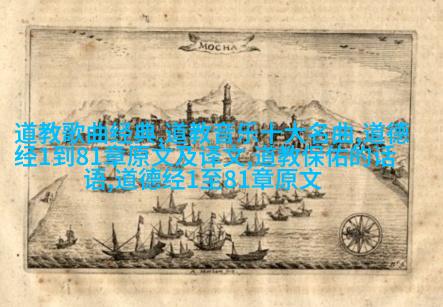 MOCHA
道教歌曲经典,道教音乐十大名曲,道德
经1到81章原文及译文,道教保佑的话
语,道德经1至81章原文